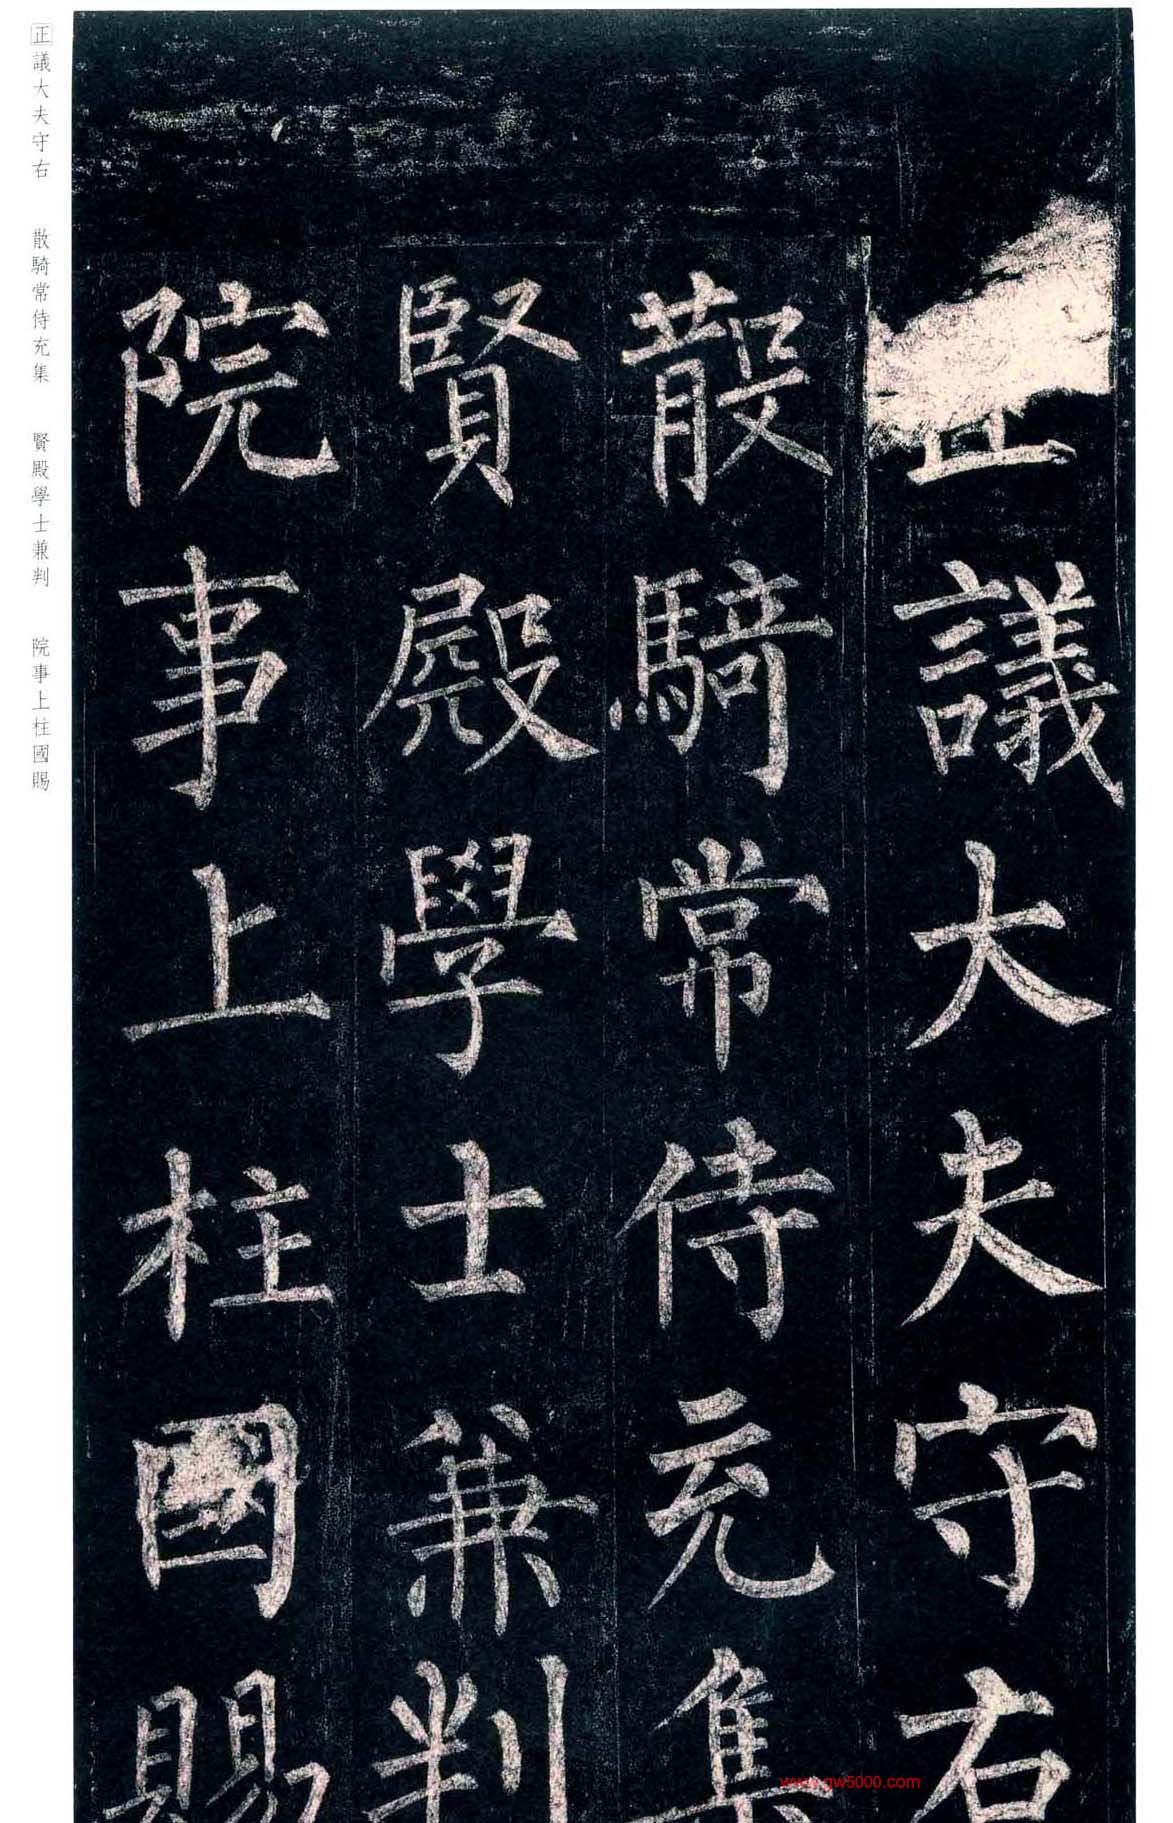 正議大夫守右
散騎常侍充集
賢殿學士兼判
院事上柱國賜
正議大夫守右 散騎常侍充集 賢殿學士兼判 院事上柱國賜
www.gw5000.com